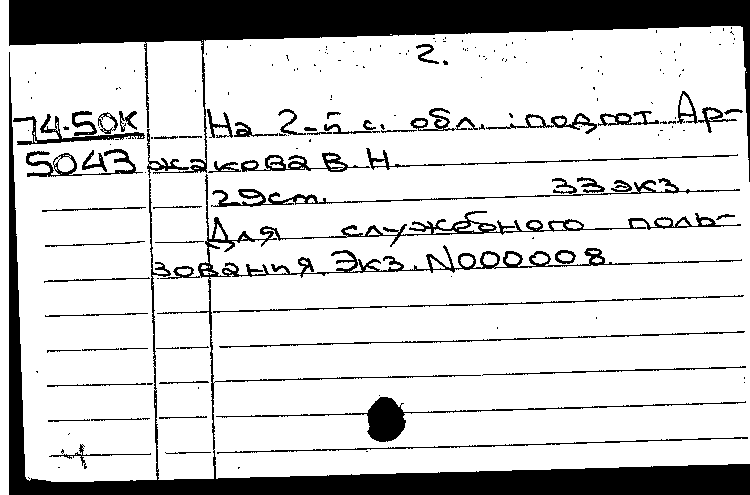 2.
74-50К На 2-й с. обл. : подгот. Ар-
5043 жакова В. Н.
29см. 33 экз.
Для служебного поль-
зования. Экз. N000008.
Ч